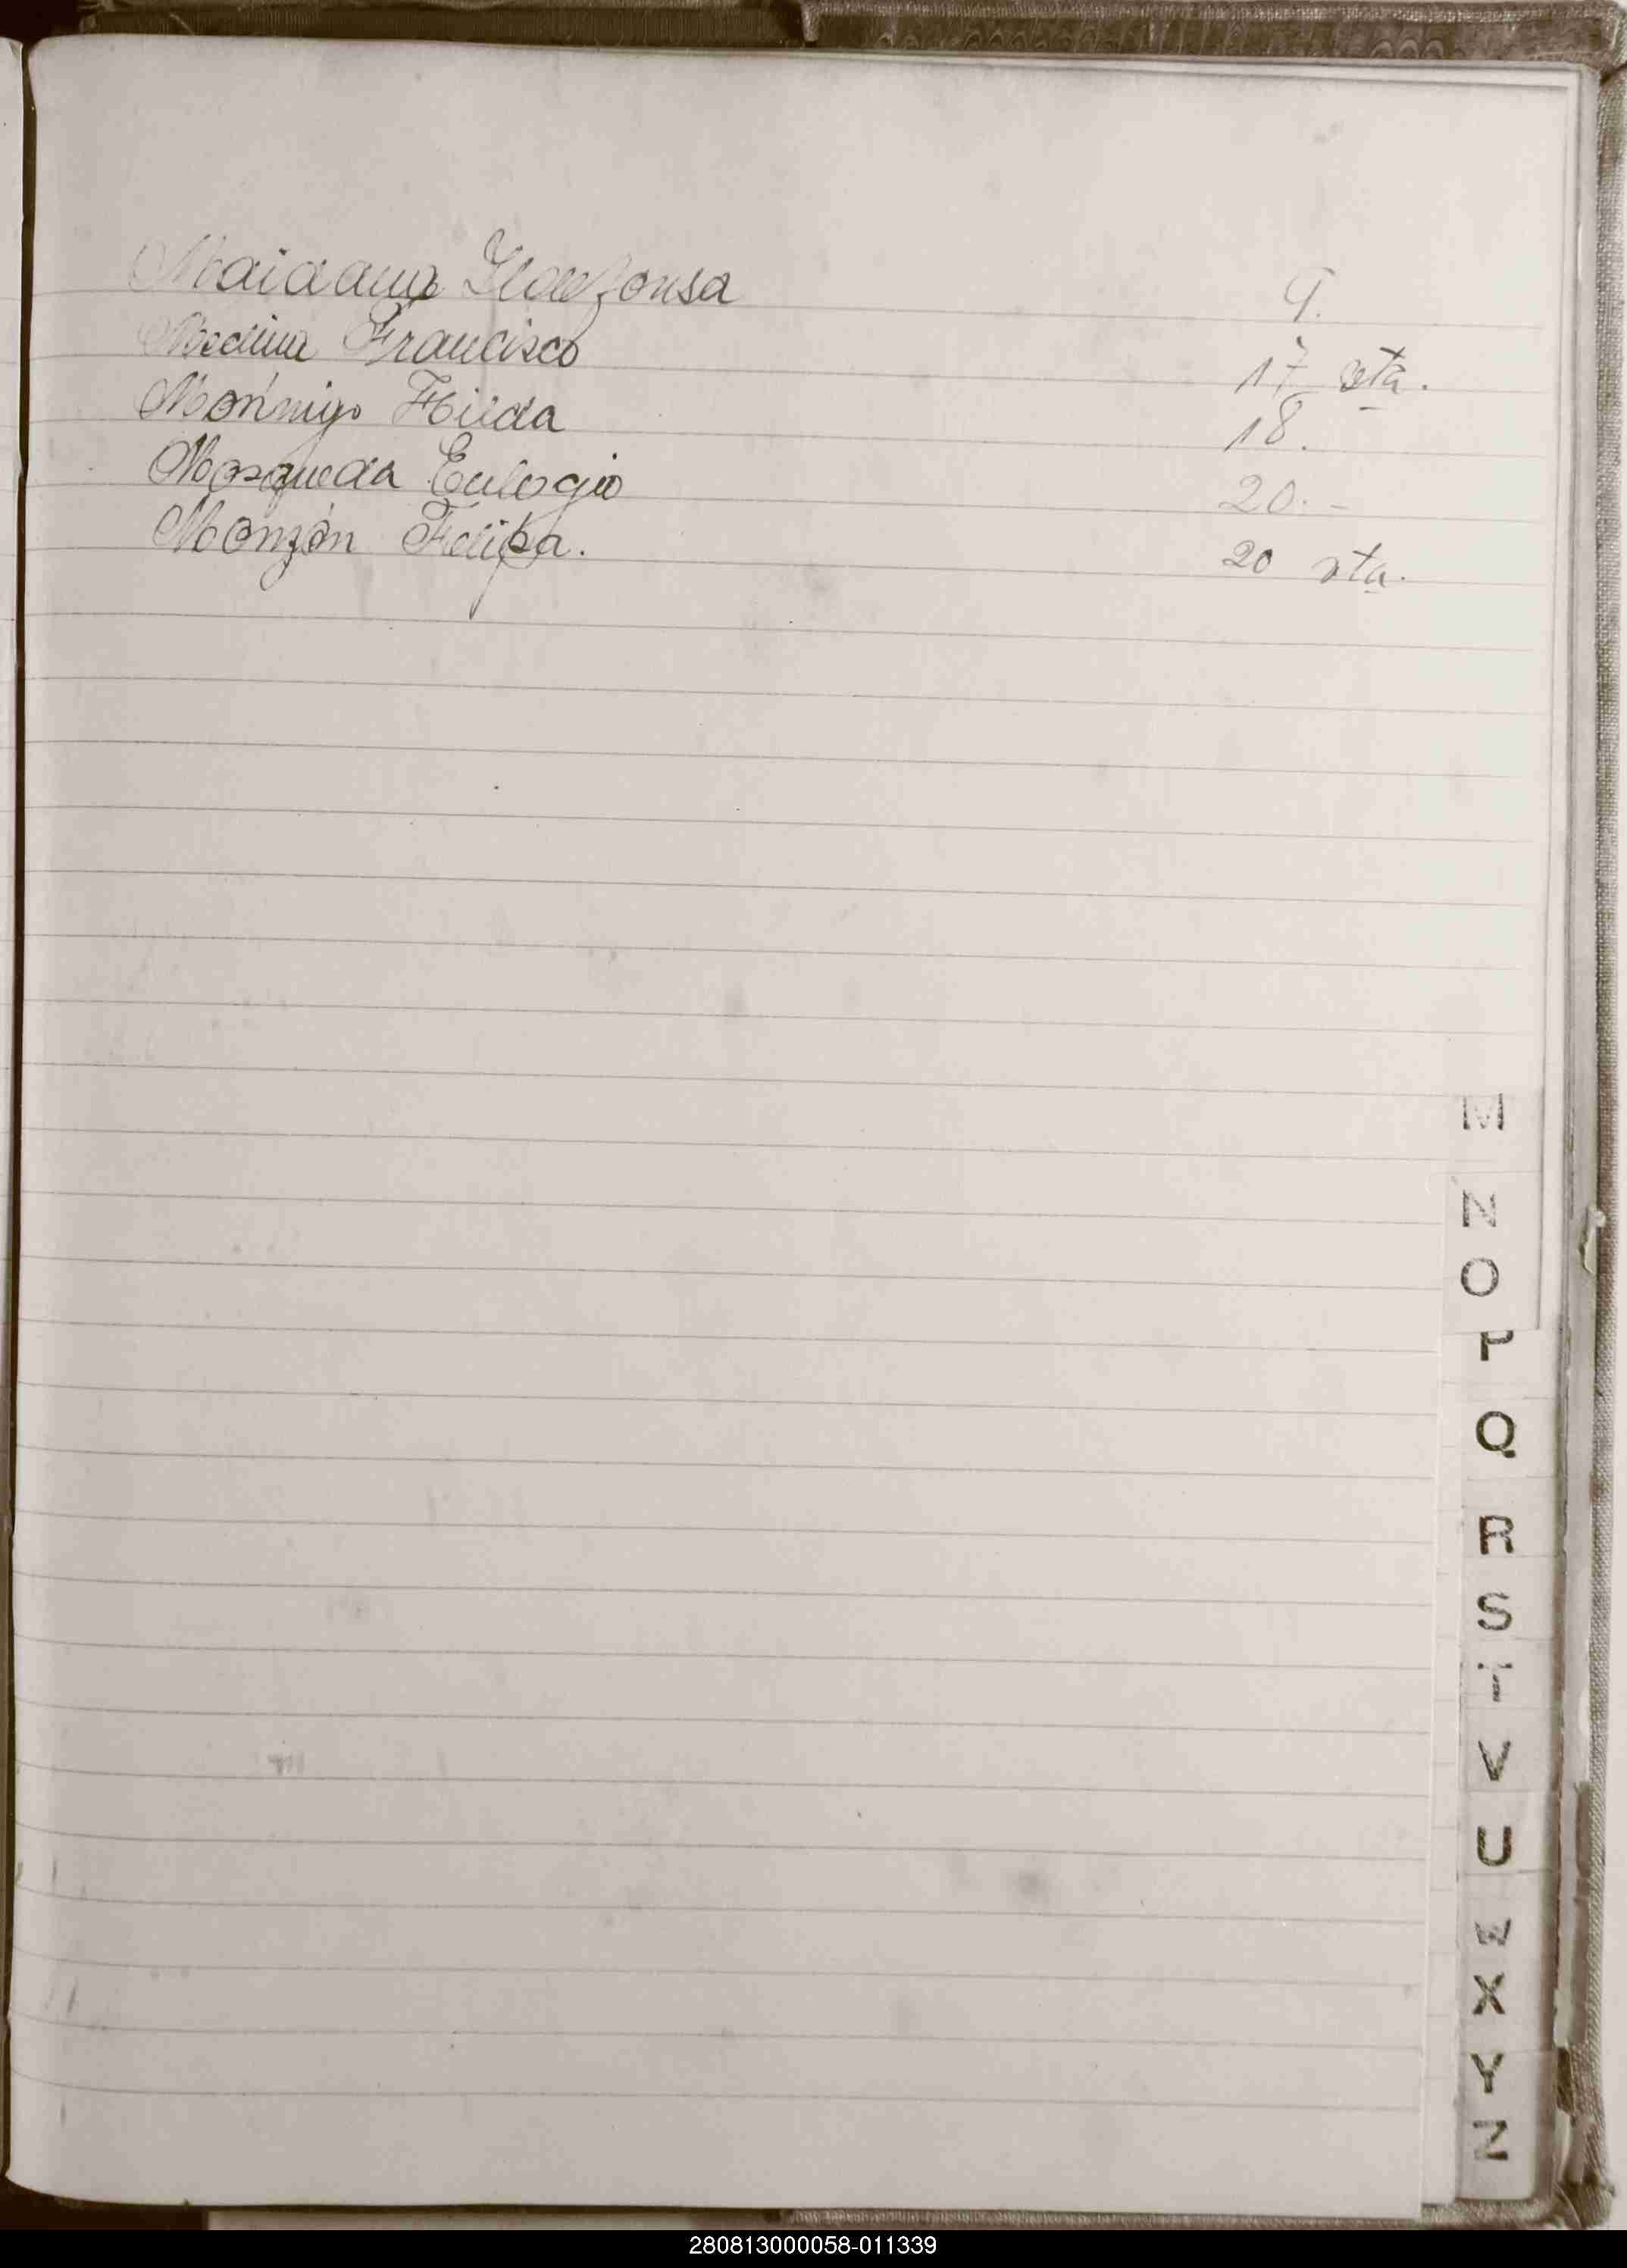 Maidana Ildefonsa 9.
Medina Francisco 17 vta.
Morínigo Hilda 18.
Mosqueda Eulogio 20. -
Monzón Felipa. 20 vta.
M
N
O
P
Q
R
S
T
V
U
W
X
Y
Z
280813000058-011339